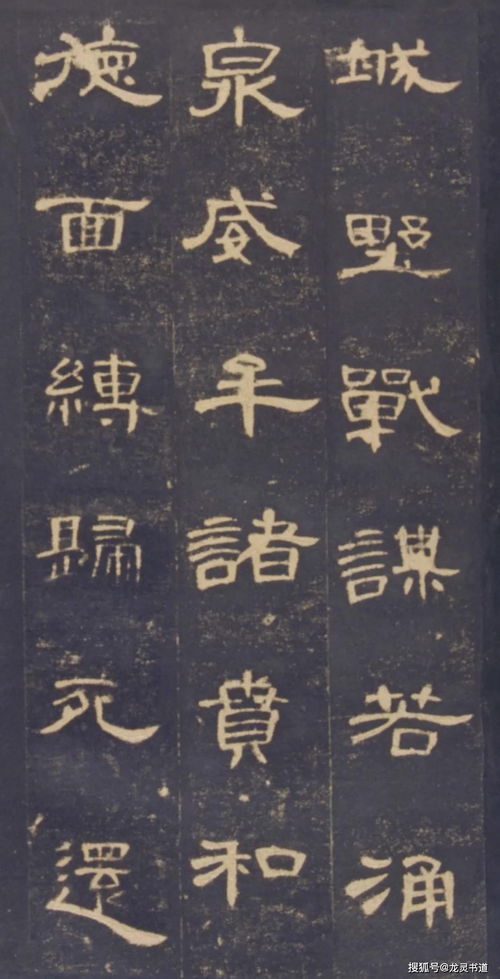 城野戰謀若涌
泉威牟諸賁和
德面縛歸死還
搜狐号@龙灵书道